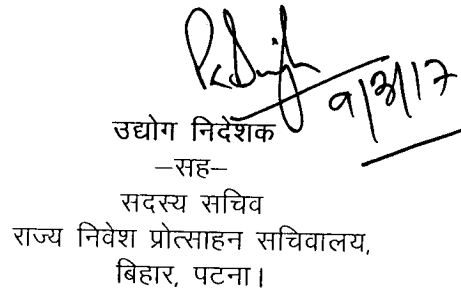 9/3/17
उद्योग निदेशक
–सह–
सदस्य सचिव
राज्य निवेश प्रोत्साहन सचिवालय,
बिहार, पटना।